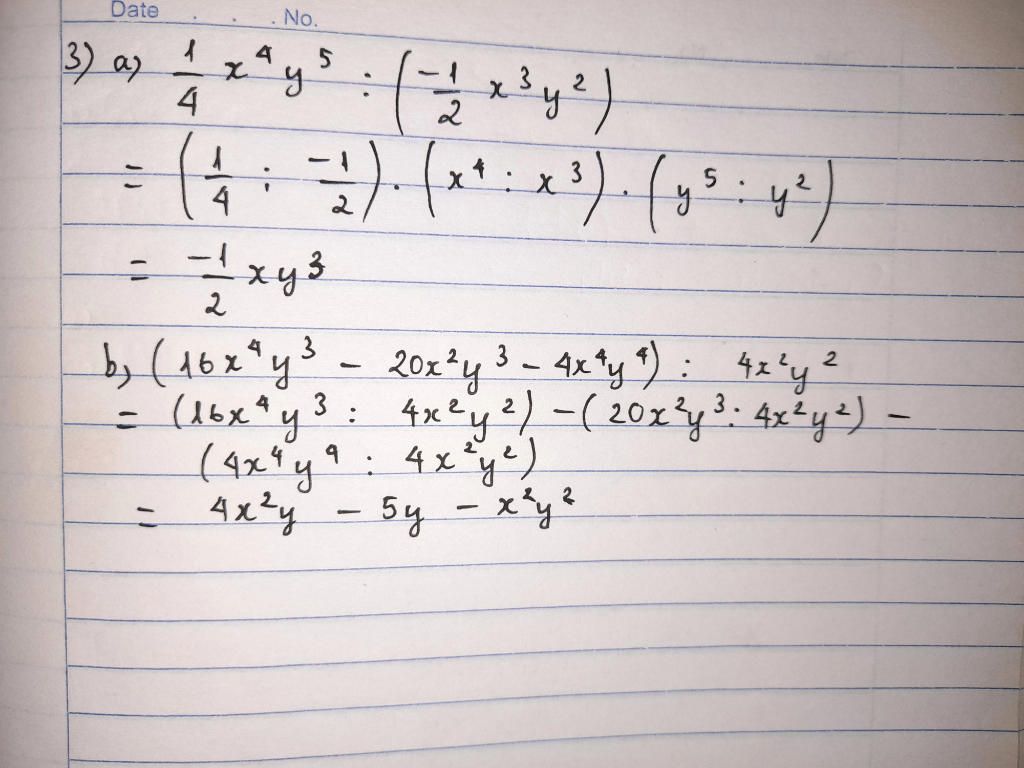 Date . . . No.
3) a) 1/4 x⁴y⁵ : (-1/2 x³y²)
= (1/4 : -1/2) . (x⁴ : x³) . (y⁵ : y²)
= -1/2 xy³
b) (16x⁴y³ - 20x²y³ - 4x⁴y⁴) : 4x²y²
= (16x⁴y³ : 4x²y²) - (20x²y³ : 4x²y²) -
(4x⁴y⁴ : 4x²y²)
= 4x²y - 5y - x²y²